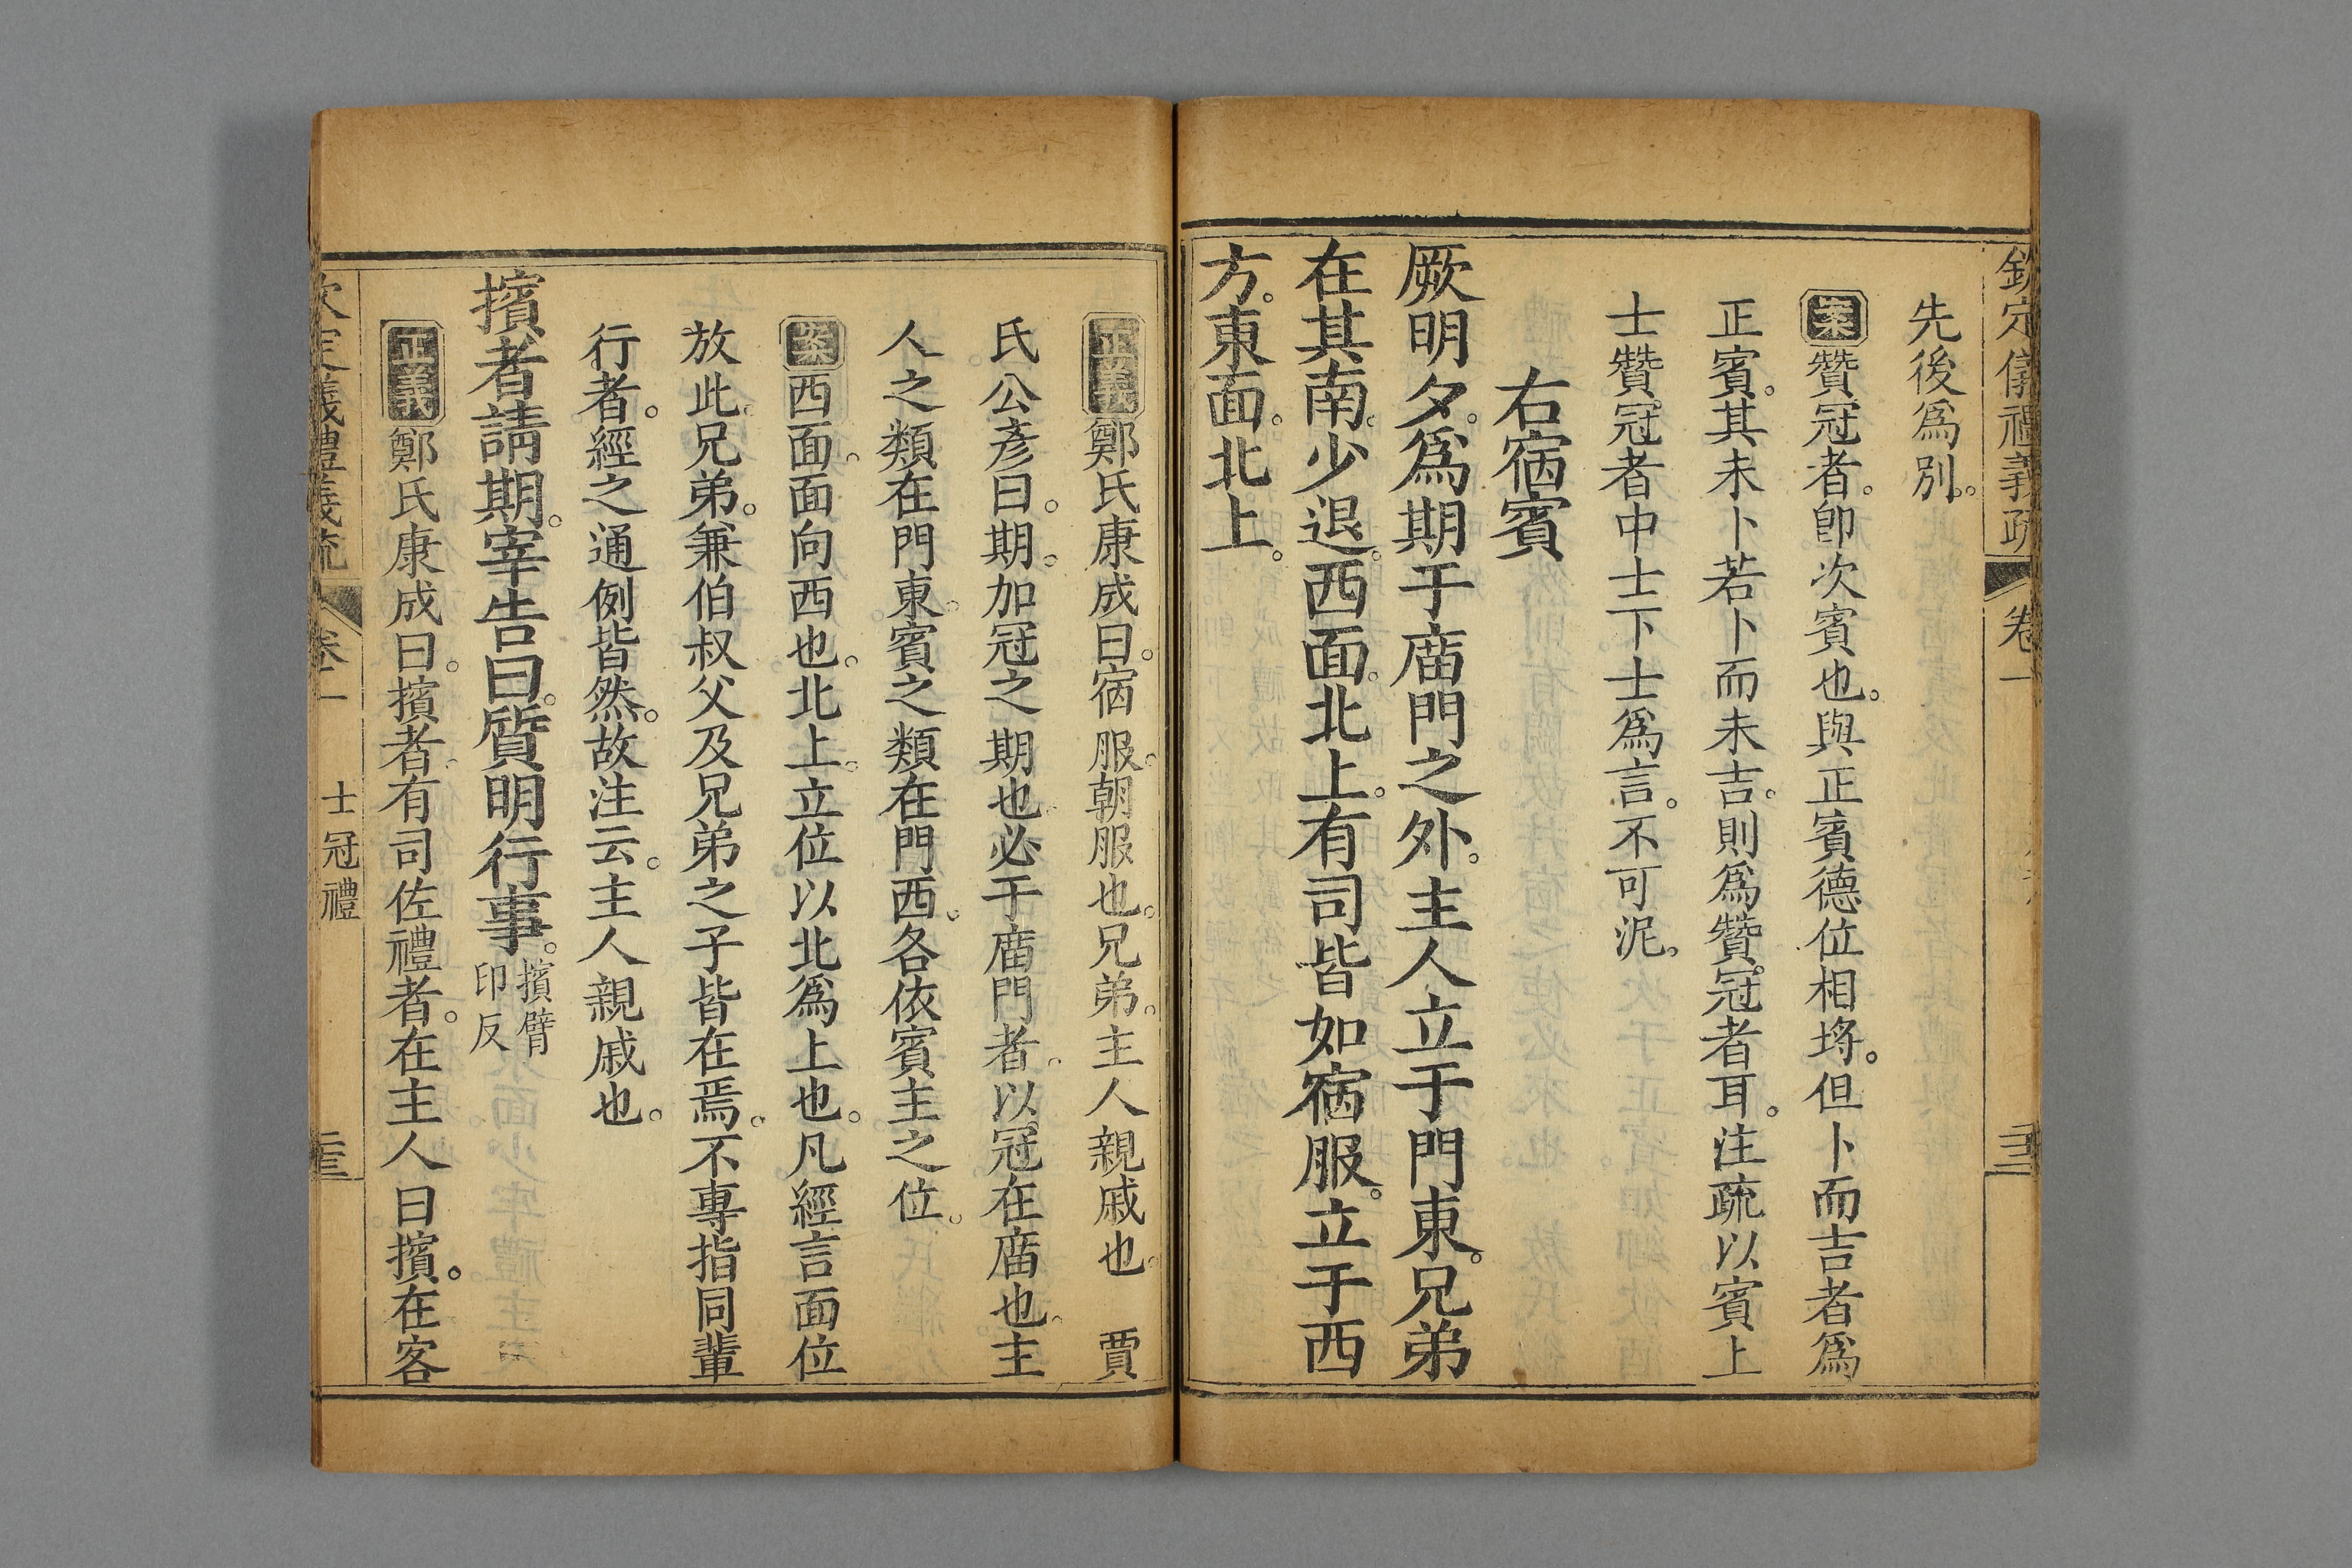 欽定儀禮義疏 卷一
先後爲別。
案贊冠者。卽次賓也。與正賓德位相埒。但卜而吉者爲
正賓。其未卜若卜而未吉。則爲贊冠者耳。注疏以賓上
士贊冠者中士下士爲言。不可泥。
右宿賓
厥明夕。爲期于廟門之外。主人立于門東。兄弟
在其南。少退。西面。北上。有司皆如宿服。立于西
方。東面。北上。
正義鄭氏康成曰。宿服。朝服也。兄弟。主人親戚也。 賈
氏公彥曰。期。加冠之期也。必于廟門者。以冠在廟也。主
人之類在門東。賓之類在門西。各依賓主之位。
案西面。面向西也。北上。立位以北爲上也。凡經言面位
放此。兄弟。兼伯叔父及兄弟之子皆在焉。不專指同輩
行者。經之通例皆然。故注云。主人親戚也。
擯者請期。宰告曰。質明行事。擯臂
印反
正義鄭氏康成曰。擯者。有司佐禮者。在主人曰擯。在客
欽定儀禮義疏 卷一 士冠禮